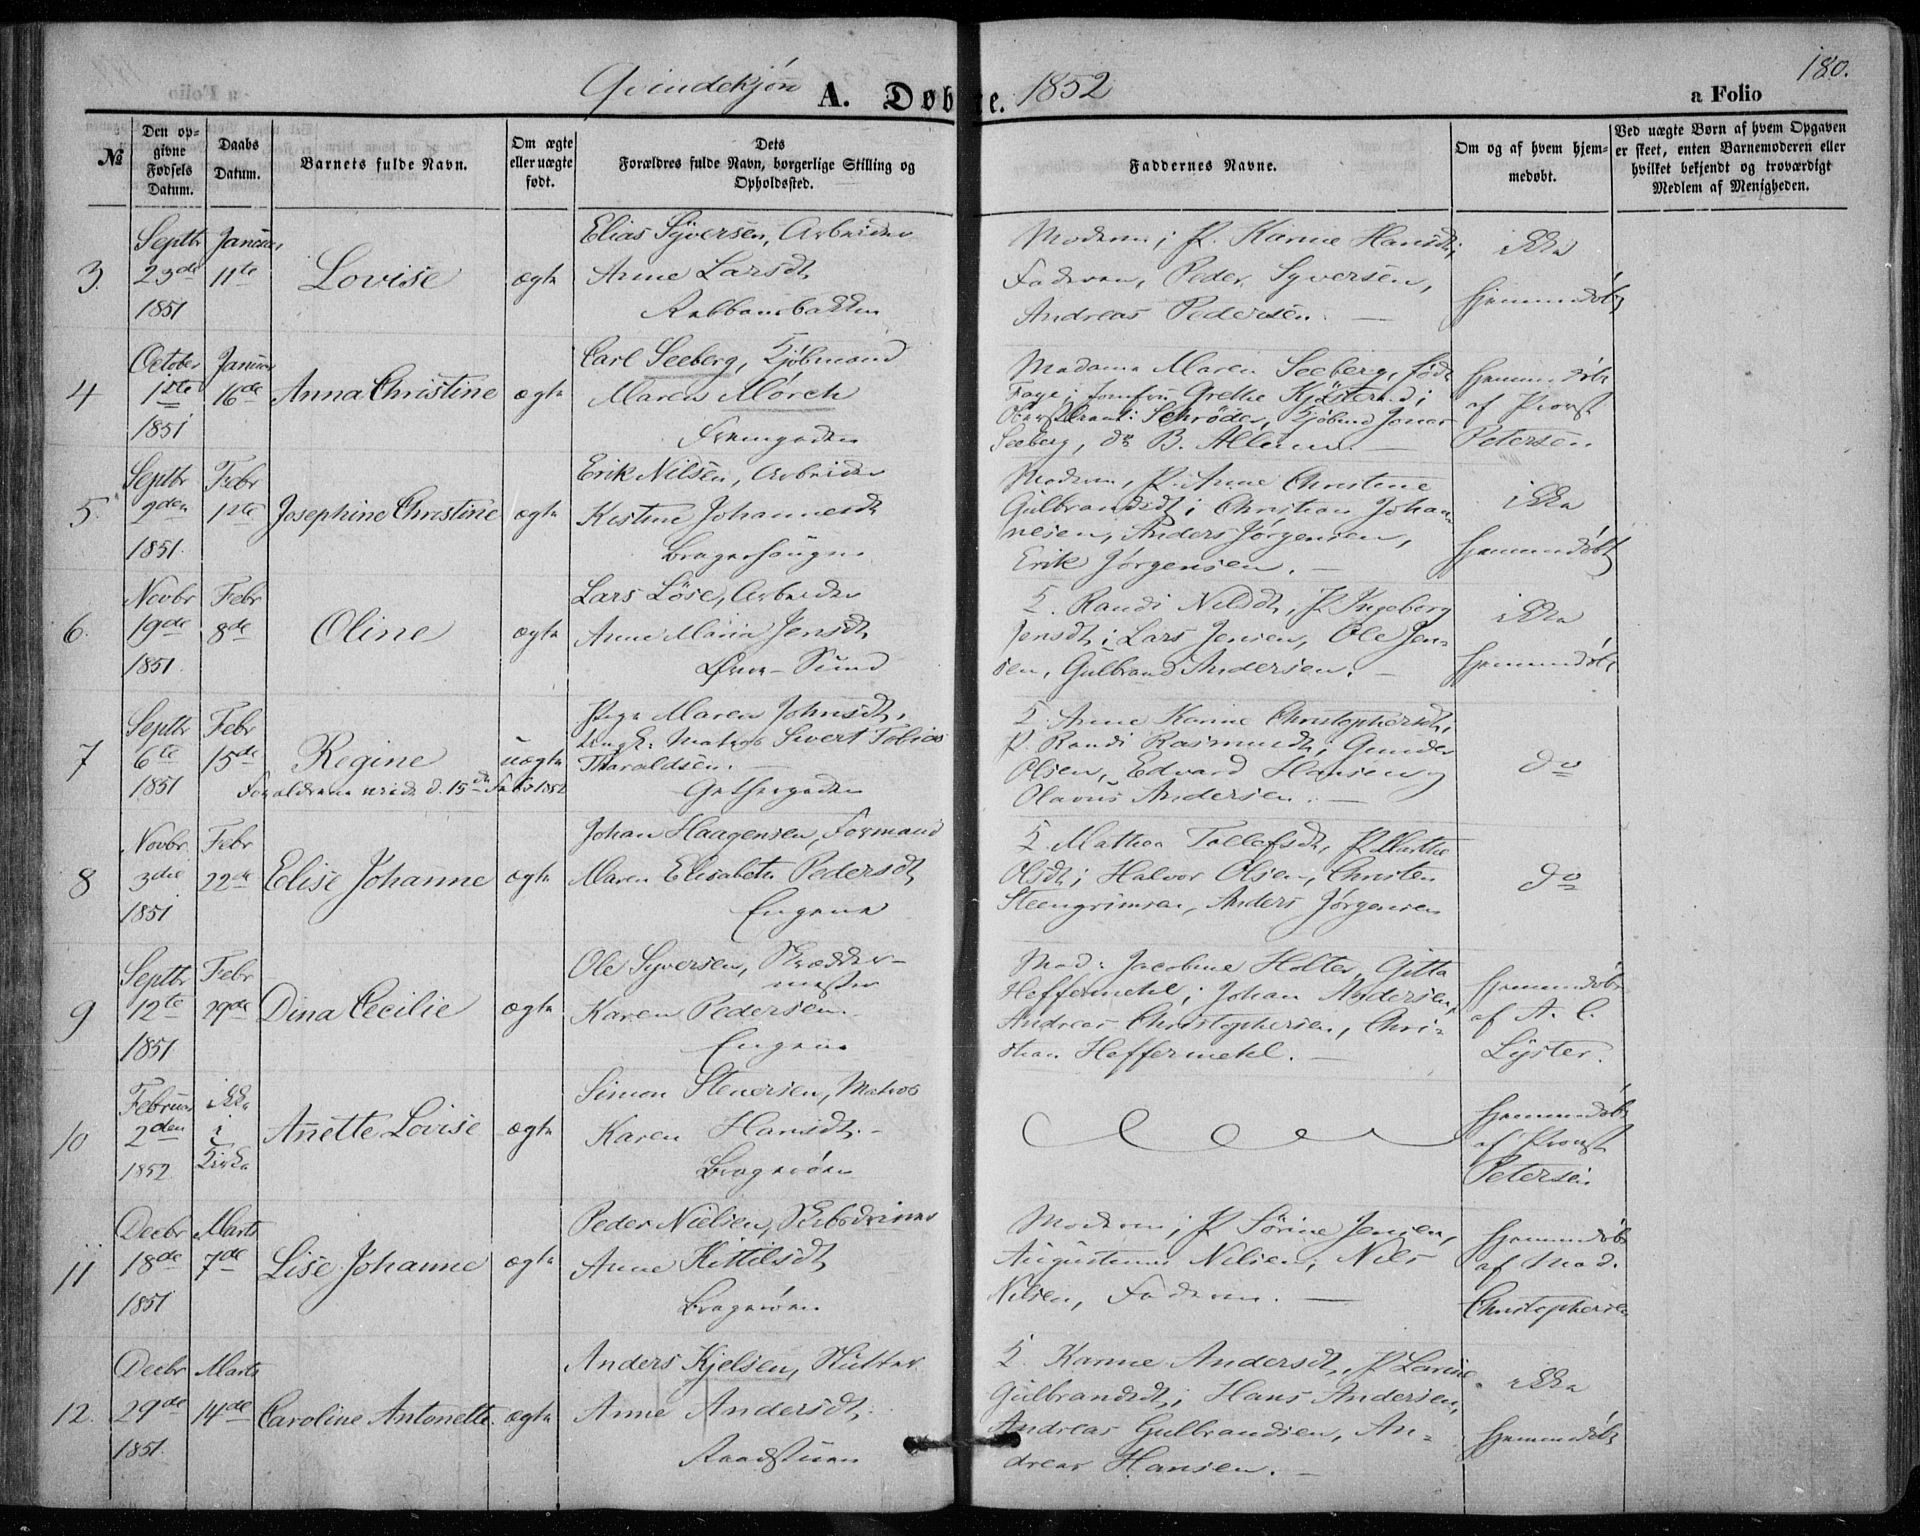 Qvindekjøn A. Døbte. 1852
180.
a Folio
№
Den opgivne Fødsels Datum.
Daabs Datum.
Barnets fulde Navn.
Om ægte eller uægte født.
Dets Forældres fulde Navn, borgerlige Stilling og Opholdssted.
Faddernes Navne.
Om og af hvem hjemmedøbt.
Ved uægte Børn af hvem Opgaven er skeet, enten Barnemoderen eller hvilket bekjendt og troværdigt Medlem af Menigheden.
3.
Septbr 23de 1851
Januar 11te
Lovise
ægte
Elias Syversen, Arbeider
Anne Larsdt
Moderen; P. Karine Hansdt;
Faderen, Peder Syversen,
Andreas Pedersen. —
ikke
hjemmedøbt
4
October 1ste 1851
Januar 16de
Anna Christine
ægte
Carl Seeberg, Kjøbmand
Maren Mørch
Madame Maren Seeberg, født
Faye; Jomfru Grethe
Schrøder, Kjøbmd Jonas
Seeberg, do B. —
hjemmedøbt
af Provst
Petersen
5.
Septbr 9den 1851.
Febr 1ste
Josephine Christine
ægte
Erik Nilsen, Arbeider
Kistine Johannesdt
Moderen, P. Anne Christine
Gulbrandsdt; Christian Johan-
nesen, Anders Jørgensen,
Erik Jørgensen. —
ikke
hjemmedøbt
6.
Novbr 19de 1851.
Febr 8de
Oline
ægte
Lars Löse, Arbeider
Anne Maria Jensdt
Øvre-Sund
K. Randi Nilsdt, P. Ingeborg
Jensdt; Lars Jensen, Ole Jen-
sen, Gulbrand Andersen. —
ikke
hjemmedøbt
7
Septbr 6te 1851
Febr 15de
Regine
uægte
Forældrene viede d. 15de Febr 1852
Pige Maren Johnsdt,
Ungk: Matros Sivert Tobias
Tharaldsen. —
K. Anne Karine Christophersdt,
P. Randi Rasmusdt; Gunder
Olsen, Edvard Hansen og
Olavus Andersen. —
do
8
Novbr 3die 1851
Febr 22de
Elise Johanne
ægte
Johan Haagensen, Formand
Maren Elisabeth Pedersdt
Engene
K. Mathea Tollefsdt, P. Marthe
Olsdt; Halvor Olsen, Christen
Steengrimsen, Anders Jørgensen
do
9
Septbr 12te 1851
Febr 29de
Dina Cecilie
ægte
Ole Syversen, Skrædder-
mester
Karen Pedersen.
Engene
Mad: Jacobine Holter, Gitta
Heffermehl; Johan Andersen,
Andreas Christophersen, Chri-
stian Heffermehl. —
hjemmedøbt
af A. C.
Lÿster.
10
Februar 2den 1852
ikke
i
Kirke
Anette Lovise
ægte
Simon Stenersen, Matros
Karen Hansdt. —
Bragerøen
hjemmedøbt
af Provst
Petersen
11
Decbr 18de 1851
Marts 7de
Lise Johanne
ægte
Peder Nielsen,
Anne Kittilsdt
Bragerøen
Moderen; P. Sörine Jensen,
Augustinus Nilsen, Nils
Nilsen, Faderen. —
hjemmedøbt
af Mad.
Christophersen
12.
Decbr 29de 1851.
Marts 14de
Caroline Antonette.
ægte
Anders Kjelsen, Slutter
Anne Andersdt,
Raadstuen
K. Karine Andersdt, P. Larine
Gulbrandsdt; Hans Andersen,
Andreas Gulbrandsen, An-
dreas Hansen. —
ikke
hjemmedøbt